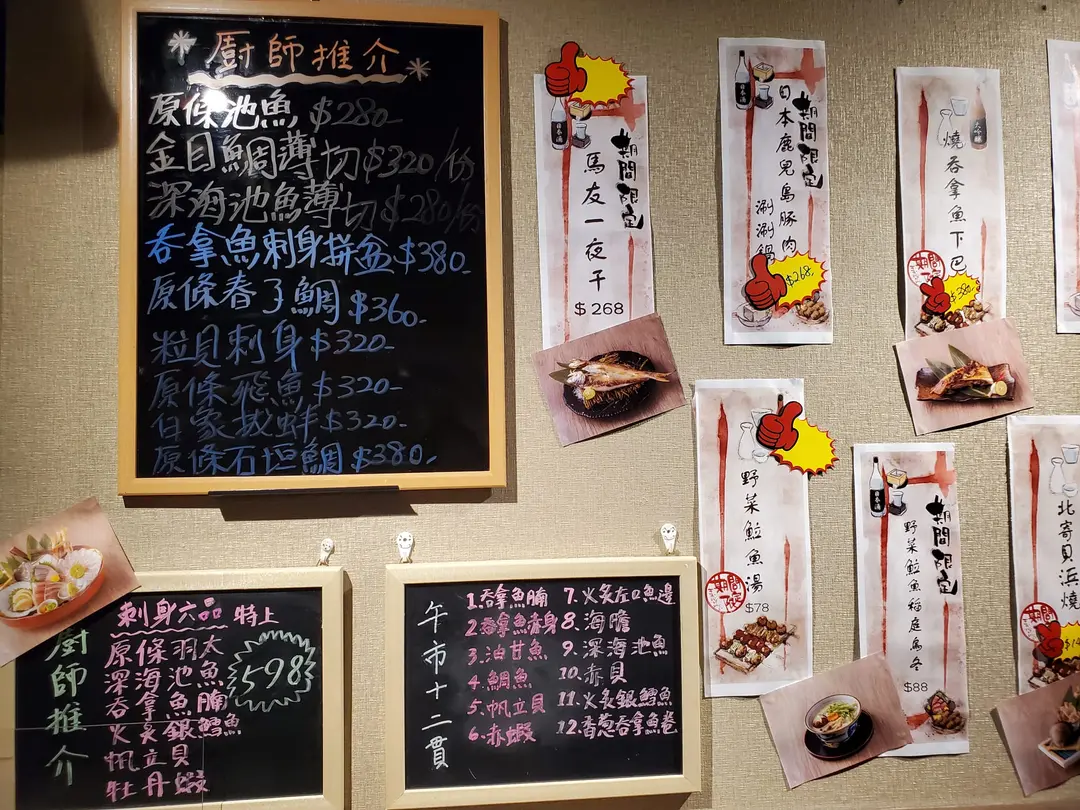 廚師推介
原條池魚 $280-
金目鯛薄切$320/份
深海池魚薄切$280/份
吞拿魚刺身拼盆$380-
原條春子鯛$360-
粒貝刺身$320-
原條飛魚$320-
白象拔蚌$320-
原條石垣鯛$380-
期間限定
馬友一夜干
$268
日本酒
期間限定
日本鹿兒島豚肉
涮涮鍋
$268
燒吞拿魚下巴
期間限定
$380
野菜𩶘魚湯
期間限定
$78
日本酒
期間限定
野菜𩶘魚稻庭烏冬
$88
北寄貝浜燒
廚師推介
刺身六品 特上
原條羽太
深海池魚
吞拿魚腩
火炙銀鱈魚
帆立貝
牡丹蝦
598
午市十二貫
1.吞拿魚腩
2.吞拿魚背身
3.油甘魚
4.鯛魚
5.帆立貝
6.赤蝦
7.火炙左口魚邊
8.海膽
9.深海池魚
10.赤貝
11.火炙銀鱈魚
12.香蔥吞拿魚卷